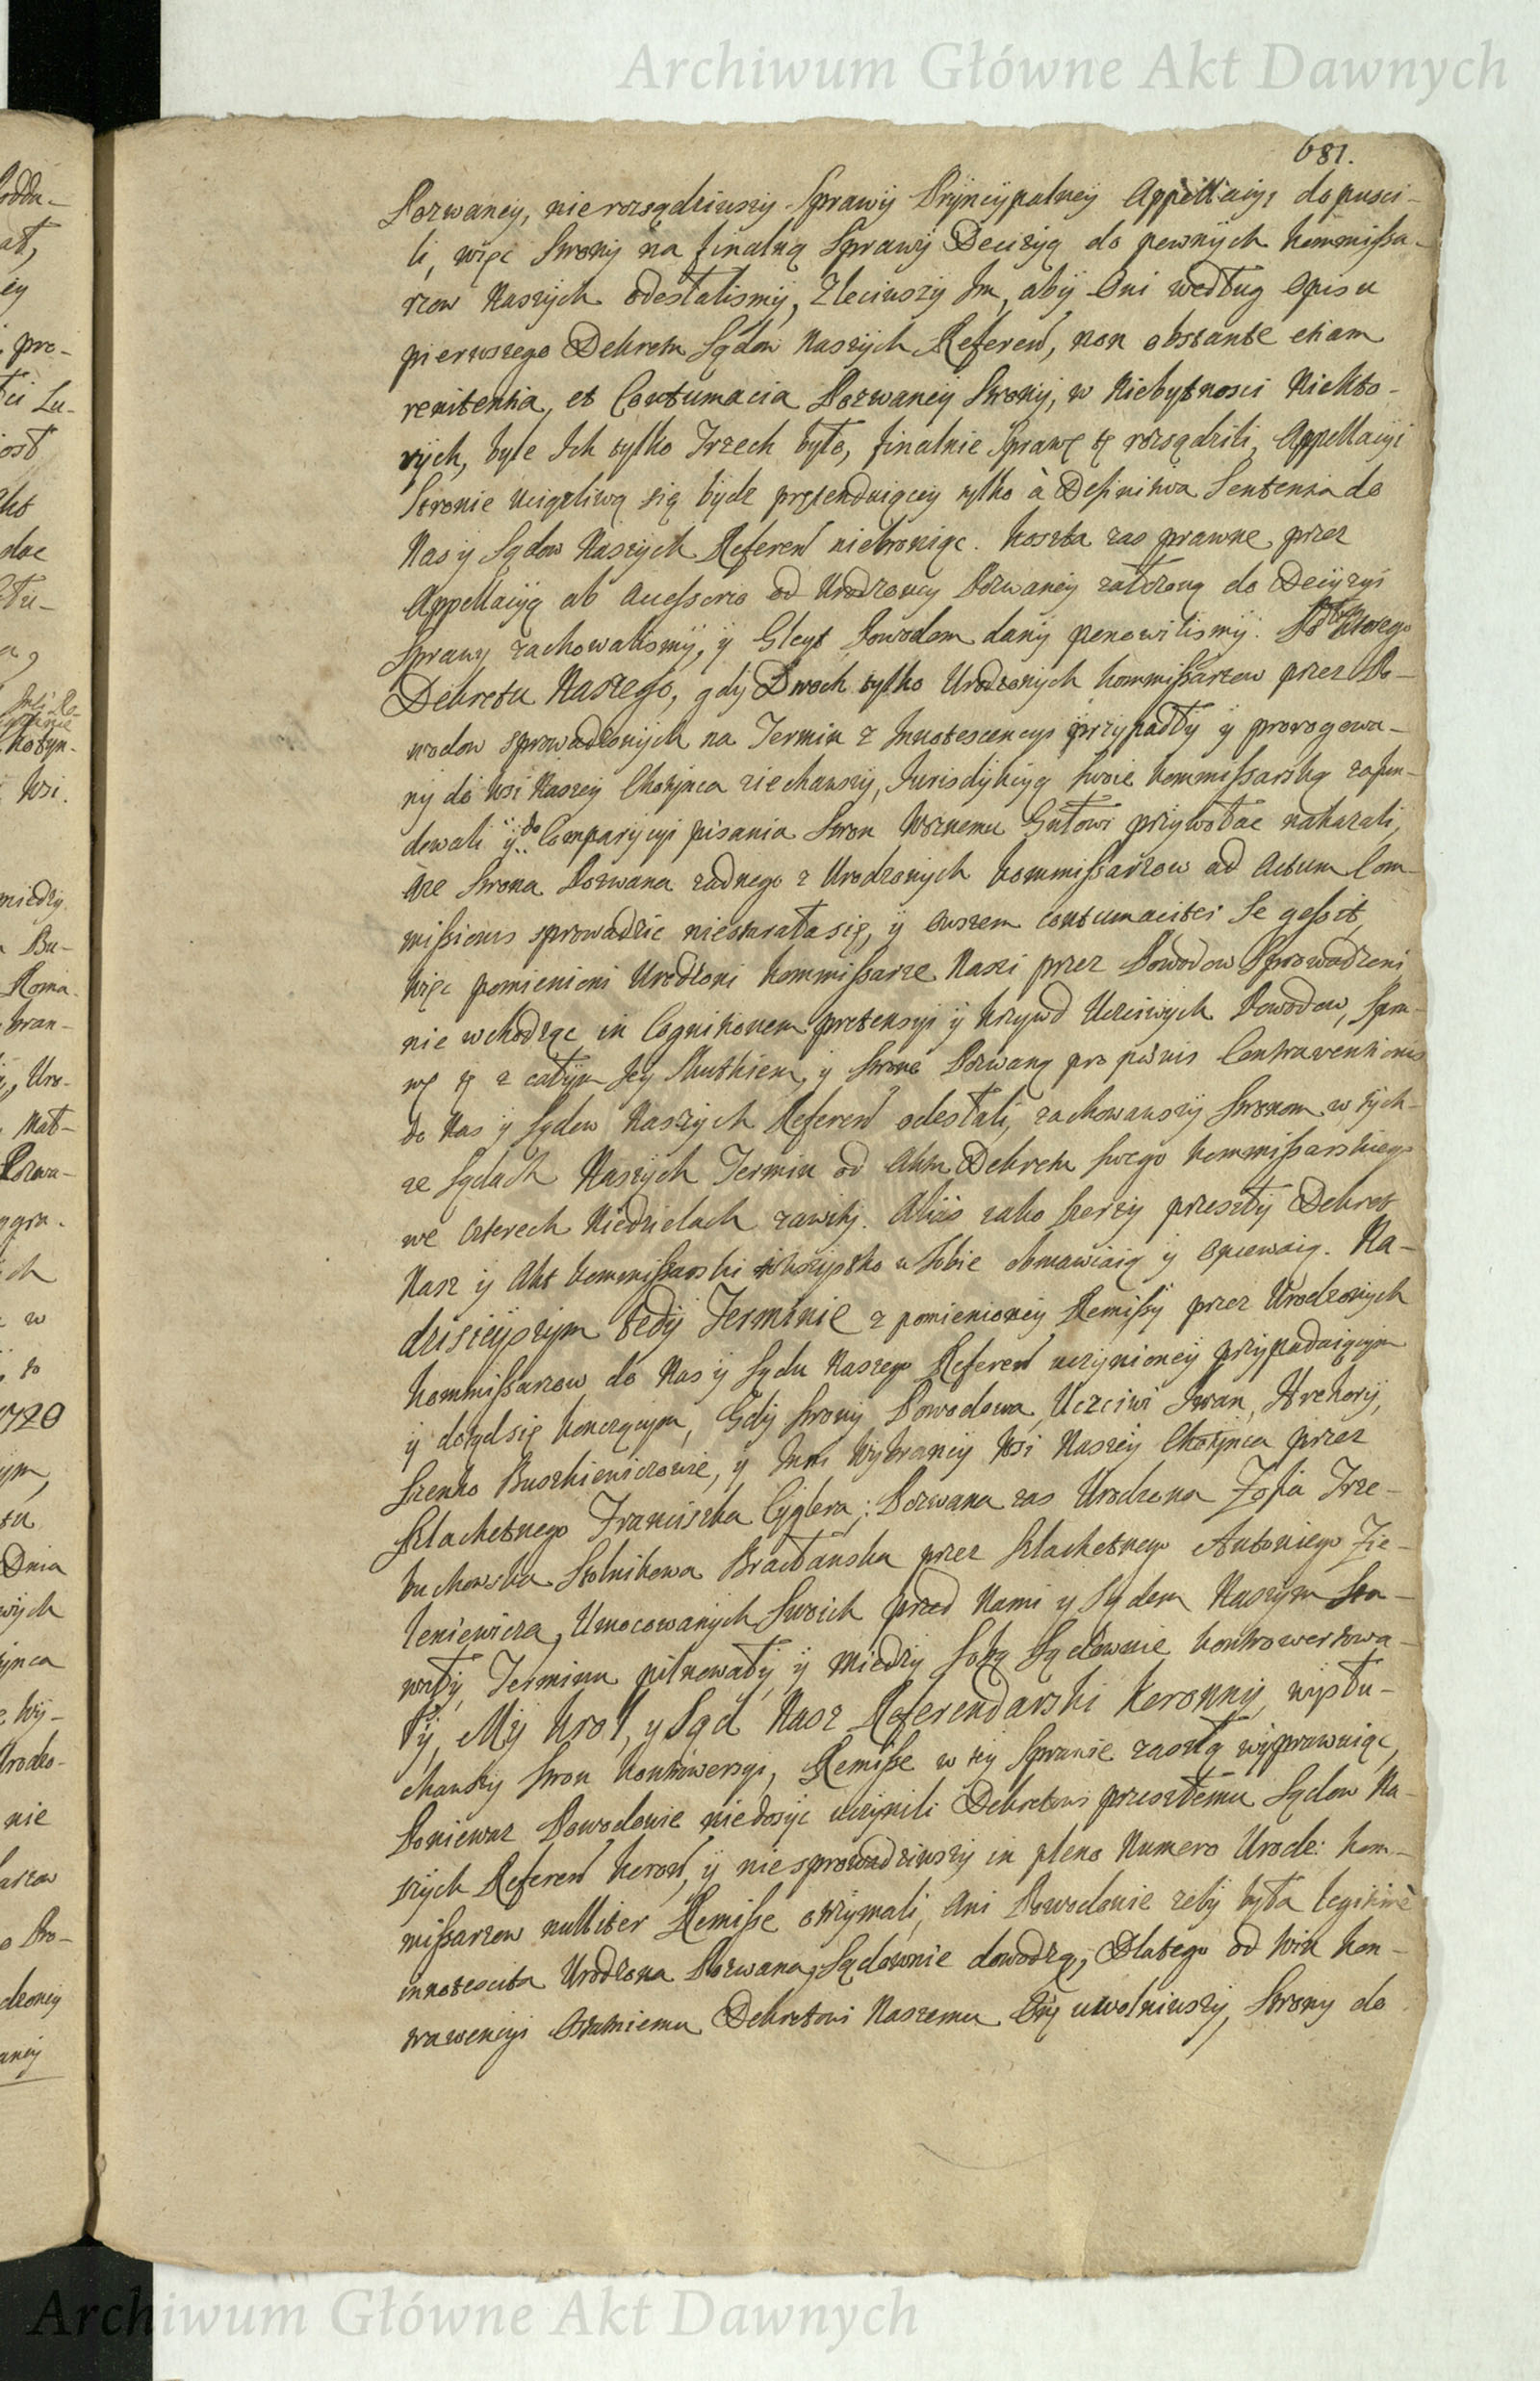 Archiwum Główne Akt Dawnych
681.
Pozwaney, nierozsądziwszy Sprawy Pryncypalney Appellacyi dopusci-
li, więc Strony na finalną Sprawy Decizyą do pewnych Kommissa-
rzow Naszych odesłalismy, Zleciwszy Im, aby Oni według Opisu
pierwszego Dekretu Sądow Naszych Referen, non obstante etiam
renitentia, et Contumacia Pozwaney Strony, w Niebytnosci Niekto-
rych, byle Ich tylko Trzech było, finalnie Sprawę tę rozsądzili, Appellacyi
Stronie uciążliwą się bydz prętenduiącey tylko à Definitiva Sententia do
Nas y Sądow Naszych Referen niebroniąc. Koszta zas prawne przez
Appellacyą ab Accessorio od Urodzoney Pozwaney założoną do Decyzyi
Sprawy zachowalismy, y Gleyt Powodom dany ponowilismy. Po ktorego
Dekretu Naszego, gdy Dwoch tylko Urodzonych Kommissarzow przez Po-
wodow sprowadzonych na Termin z Innotescencyi przypadły y prorogowa-
ny do Wsi Naszey Chotynca ziechawszy, Jurisdykcyą swoie Kommissarską zafun-
dowali y do Comparycyi pisania Stron Woznemu Gułowi przywołac nakazali,
aze Strona Pozwana zadnego z Urodzonych Kommissarzow ad Actum Com-
missionis sprowadzic niestarała się, y owszem contumaciter se gessit,
więc pomienieni Urodzoni Kommissarze Nasi przez Powodow Sprowadzeni
nie wchodząc in Cognitionem pretensyi y krzywd Uczciwych Powodow, Spra-
wę tę z całym Jey Skutkiem, y Stronę Pozwaną pro pœnis Contraventionis
do Nas y Sądow Naszych Referen odesłali, zachowawszy Stronom w tych-
ze Sądach Naszych Termin od Aktu Dekretu swego Kommissarskiego
we czterech Niedzielach zawity. Aliàs iako szerzy przeszły Dekret
Nasz y Akt Kommissarski wszystko w sobie obmawiaią y opiewaią. Na-
dzisieyszym tedy Terminie z pomienioney Remissy przez Urodzonych
Kommissarzow do Nas y Sądu Naszego Referen uczynioney przypadaiącym
y dotąd się konczącym, Gdy Strony Powodowa, Uczciwi Iwan, Hrehory,
Szenko Buszkiewiczowie, y Inni Wybrancy Wsi Naszey Chotynca przez
Szlachetnego Franciszka Cyglera; Pozwana zas Urodzona Zofia Trze-
buchowska Stolnikowa Bracławska przez Szlachetnego Antoniego Zie-
leniewicza, Umocowanych Swoich przed Nami y Sądem Naszym Sta-
wały, Terminu pilnowały, y między sobą Sądownie kontrowersowa-
ły, My Krol, y Sąd Nasz Referendarski Koronny, wysłu-
chawszy Stron kontrowersyi, Remisse w tey Sprawie zaszłą wyprawuiąc,
Poniewaz Powodowie niedosyc uczynili Dekretowi przeszłemu Sądow Na-
szych Referen Koron, y niesprowadziwszy in pleno Numero Urodz: Kom-
missarzow nulliter Remisse otrzymali, Ani Powodowie zeby była legitimè
innotescita Urodzona Pozwana, Sądownie dowodzą, Dlatego od Win Kon-
trawencyi Ostatniemu Dekretowi Naszemu Onę uwolniwszy, Strony do
Archiwum Główne Akt Dawnych